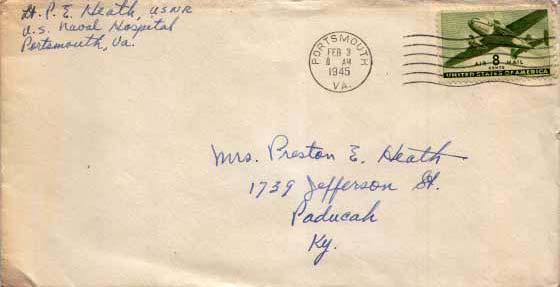 Lt. P. E. Heath, USNR
U.S. Naval Hospital
Portsmouth, Va.
PORTSMOUTH
FEB 3
8 AM
1945
VA.
8
CENTS
AIR MAIL
UNITED STATES OF AMERICA
Mrs. Preston E. Heath
1739 Jefferson St.
Paducah
Ky.